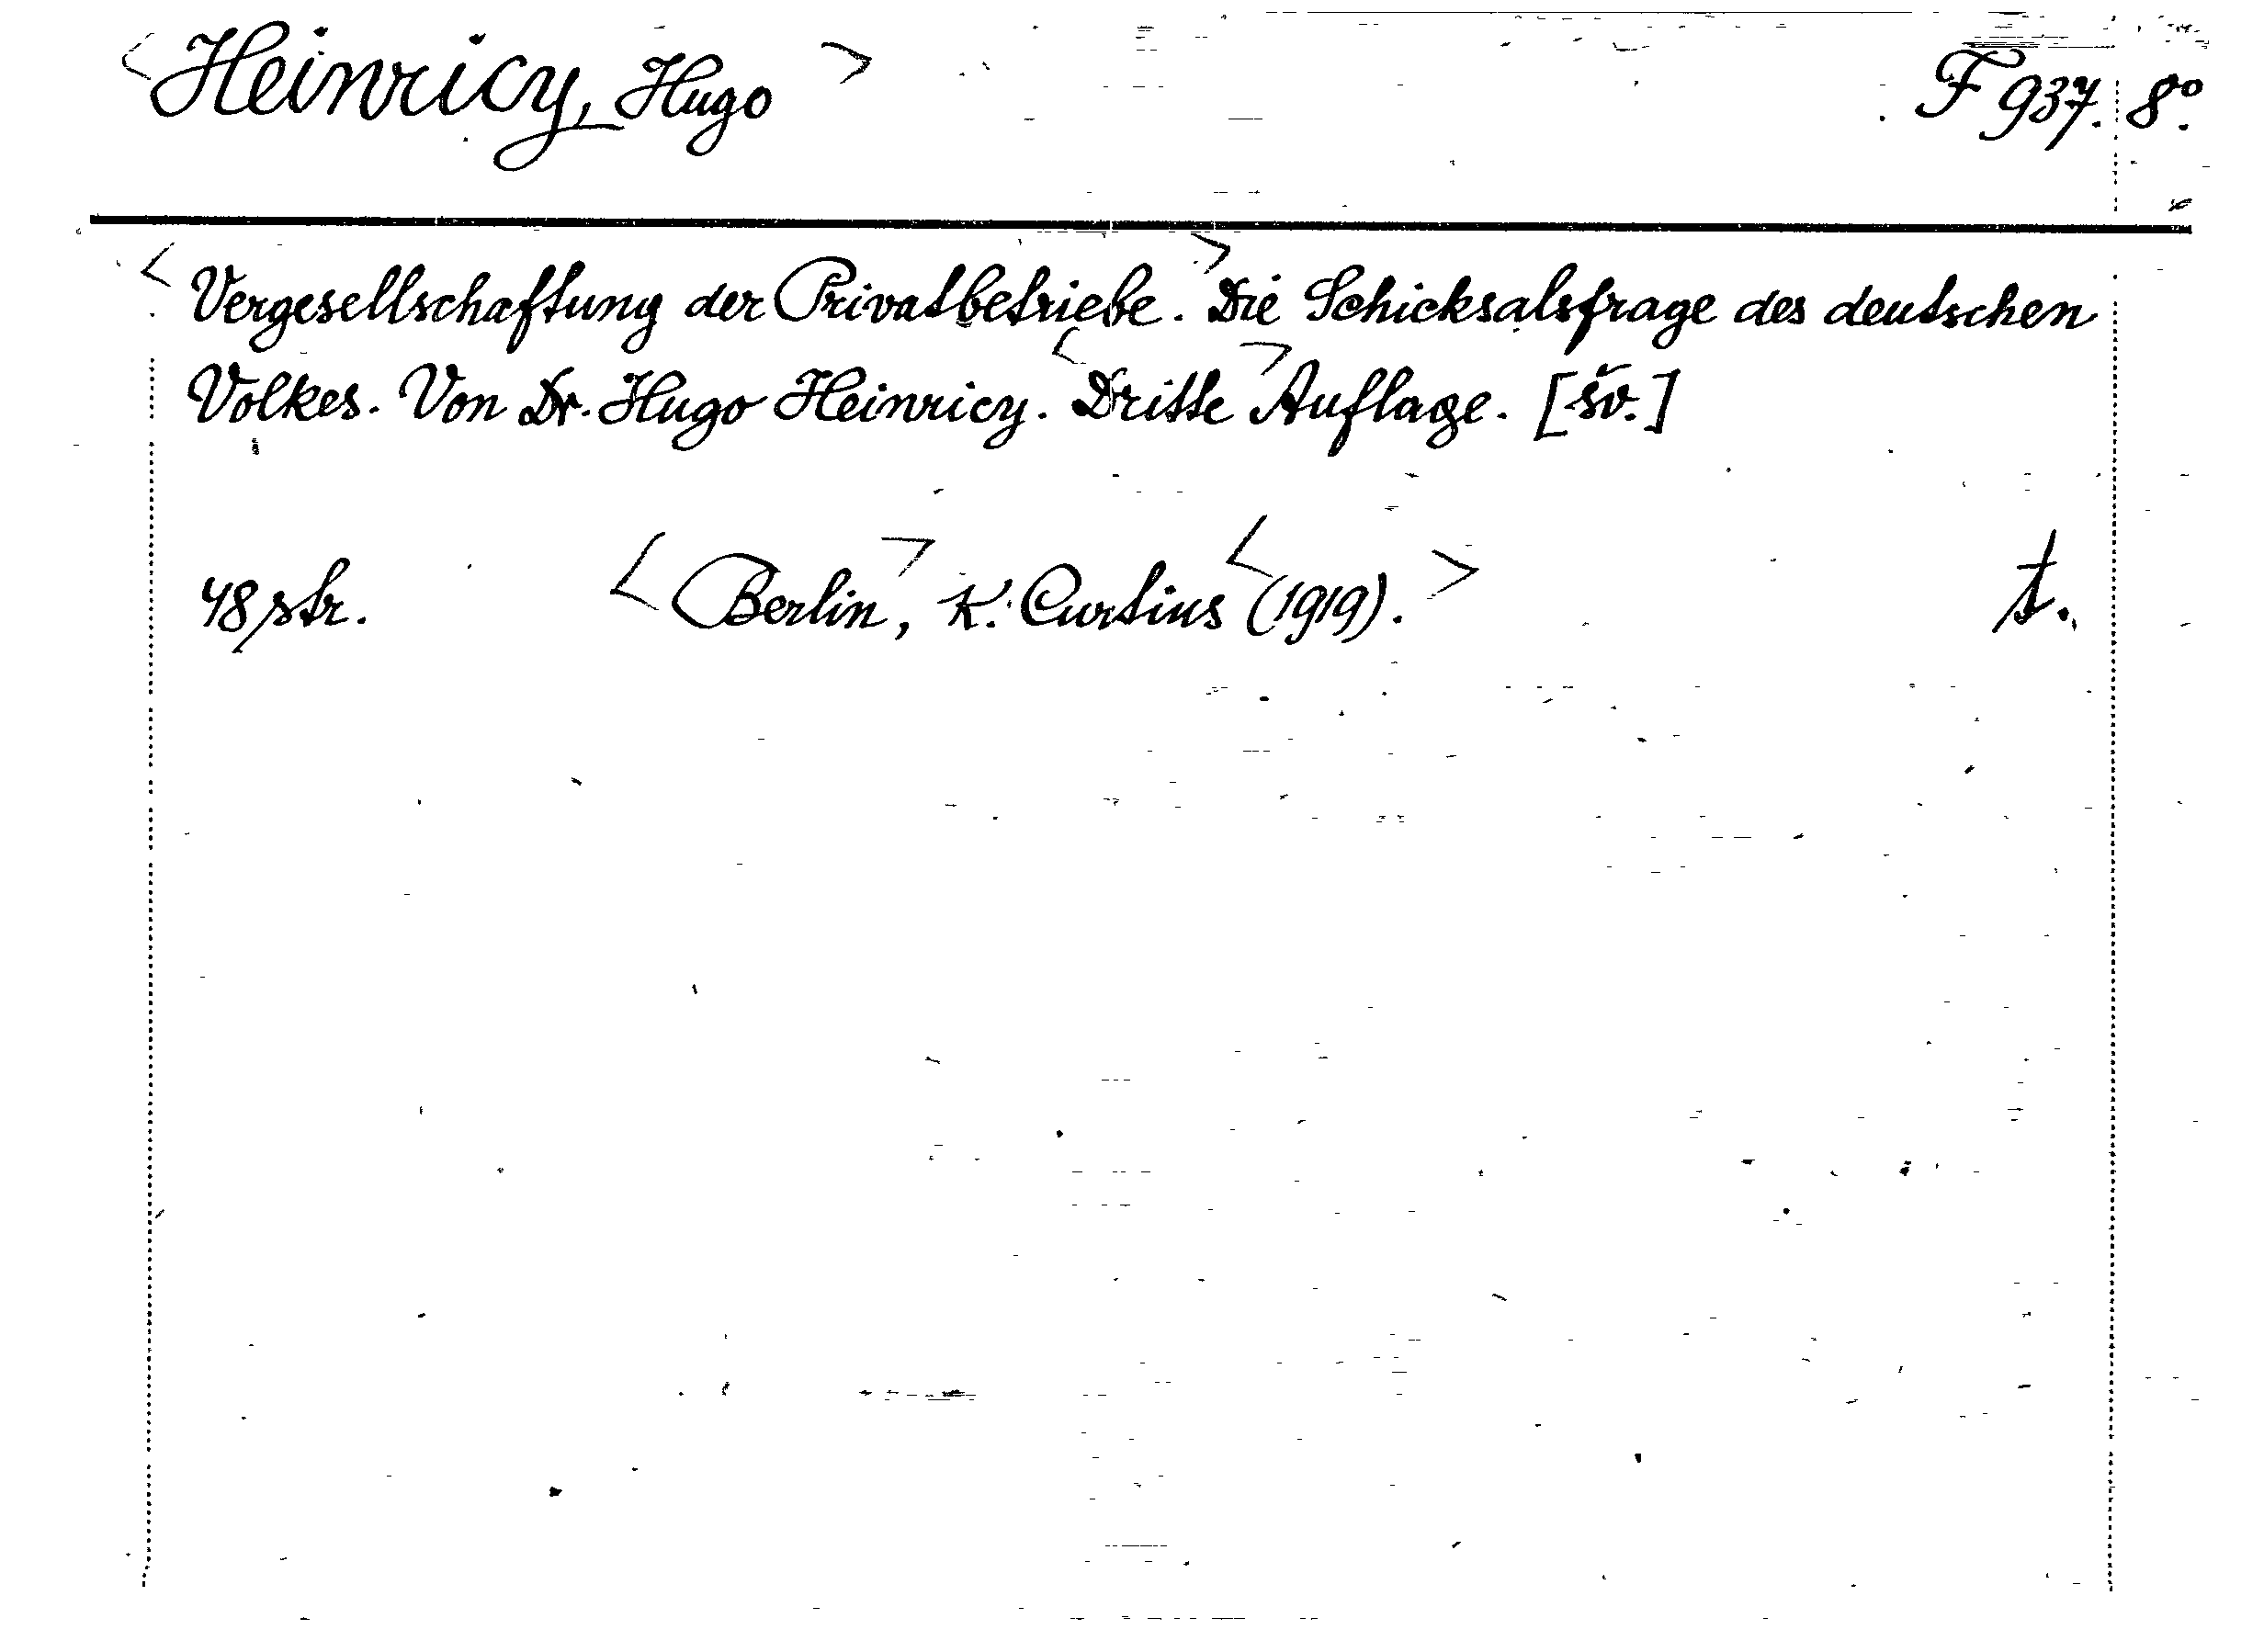 <Heinricy, Hugo> F 937. 8°.
<Vergesellschaftung der Privatbetriebe.> Die Schicksalsfrage des deutschen
Volkes. Von Dr. Hugo Heinricy. <Dritte> Auflage. [šv.]
48 str. <Berlin>, K. Curtius <(1919).> t.